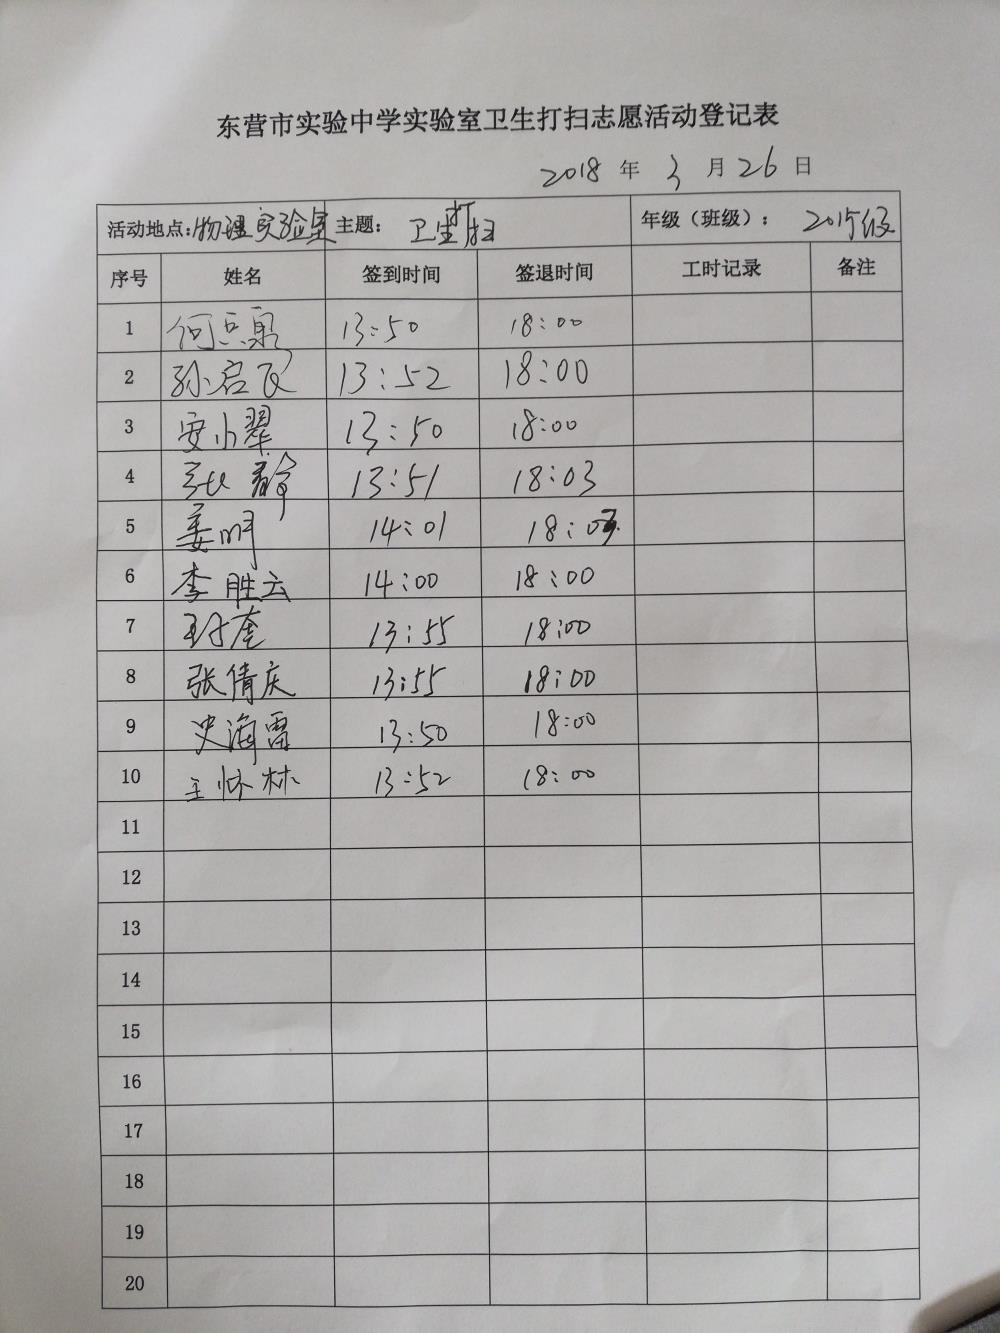 东营市实验中学实验室卫生打扫志愿活动登记表
2018 年 3 月 26 日
活动地点：物理实验室 主题： 卫生打扫 年级（班级）： 2015级
序号 姓名 签到时间 签退时间 工时记录 备注
1 13:50 18:00
2 孙启民 13:52 18:00
3 安小翠 13:50 18:00
4 张静 13:51 18:03
5 姜明 14:01 18:03
6 李胜云 14:00 18:00
7 13:55 18:00
8 张倩庆 13:55 18:00
9 史海雷 13:50 18:00
10 王怀林 13:52 18:00
11
12
13
14
15
16
17
18
19
20